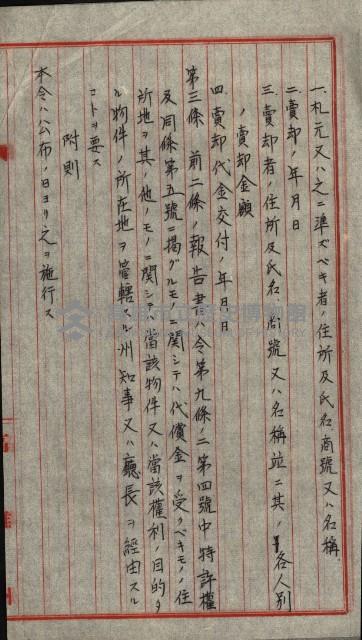 一、札元又ハ之ニ準ズベキ者ノ住所及氏名、商號又ハ名稱
二、賣却ノ年月日
三、賣却者ノ住所及氏名、商號又ハ名稱竝ニ其ノ各人別
ノ賣却金額
四、賣却代金交付ノ年月日
第三條 前二條ノ報告書ハ令第九條ノ三第四號中特許權
及同條第五號ニ揭グルモノニ關シテハ代償金ヲ受クベキモノノ住
所地ヲ其ノ他ノモノニ関シテハ當該物件又ハ當該權利ノ目的タ
ル物件ノ所在地ヲ管轄スル州知事又ハ廳長ヲ經由スル
コトヲ要ス
附則
本令ハ公布ノ日ヨリ之ヲ施行ス